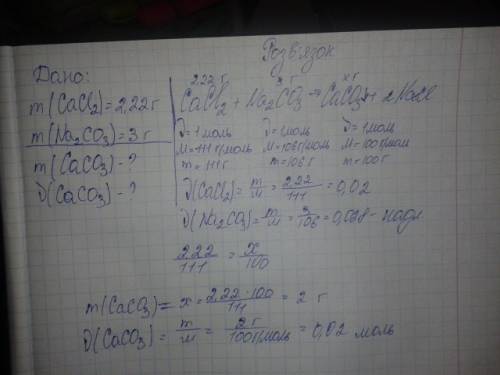 Розв'язок
Дано:
m(CaCl₂)=2,22г
m(Na₂CO₃)=3г
m(CaCO₃)-?
ϑ(CaCO₃)-?
2,22 г 3 г x г
CaCl₂ + Na₂CO₃ → CaCO₃ + 2NaCl
ϑ=1моль ϑ=1моль ϑ=1моль
M=111г/моль M=106г/моль M=100г/моль
m=111г m=106г m=100г
ϑ(CaCl₂)= m/M = 2.22/111 = 0,02
ϑ(Na₂CO₃)= m/M = 3/106 = 0,028 - надл.
2.22/111 = x/100
m(CaCO₃)= x = 2,22·100/111 = 2 г
ϑ(CaCO₃)= m/M = 2г/100г/моль = 0,02 моль